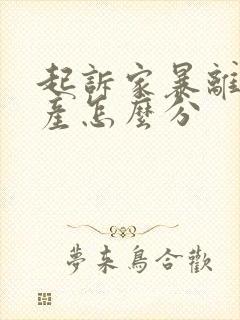 起訴家暴離
產怎麼分
夢來鳥合歡